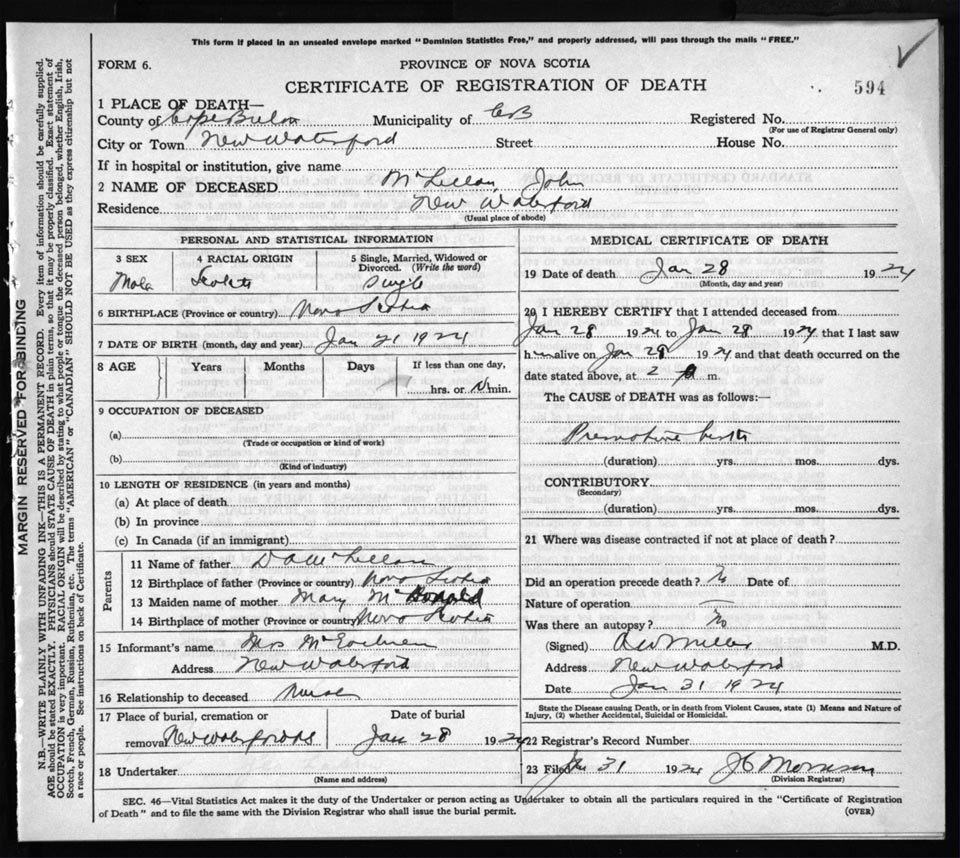 This form if placed in an unsealed envelope marked "Dominion Statistics Free," and properly addressed, will pass through the mails "FREE."
FORM 6.
PROVINCE OF NOVA SCOTIA
CERTIFICATE OF REGISTRATION OF DEATH
594
1 PLACE OF DEATH—
County of Cape Breton Municipality of CB Registered No.
(For use of Registrar General only)
City or Town New Waterford Street House No.
If in hospital or institution, give name
2 NAME OF DECEASED McLellan, John
Residence New Waterford
(Usual place of abode)
PERSONAL AND STATISTICAL INFORMATION
3 SEX 4 RACIAL ORIGIN 5 Single, Married, Widowed or Divorced. (Write the word)
Male Scotch Single
6 BIRTHPLACE (Province or country) Nova Scotia
7 DATE OF BIRTH (month, day and year) Jan 21 1924
8 AGE Years Months Days If less than one day,
hrs. or min.
9 OCCUPATION OF DECEASED
(a)
(Trade or occupation or kind of work)
(b)
(Kind of industry)
10 LENGTH OF RESIDENCE (in years and months)
(a) At place of death
(b) In province
(c) In Canada (if an immigrant)
Parents
11 Name of father D A McLellan
12 Birthplace of father (Province or country) Nova Scotia
13 Maiden name of mother Mary McDonald
14 Birthplace of mother (Province or country) Nova Scotia
15 Informant's name Mrs McEachern
Address New Waterford
16 Relationship to deceased Nurse
17 Place of burial, cremation or removal New Waterford NS
Date of burial Jan 28 1924
18 Undertaker
(Name and address)
MEDICAL CERTIFICATE OF DEATH
19 Date of death Jan 28 1924
(Month, day and year)
20 I HEREBY CERTIFY that I attended deceased from
Jan 28 1924 to Jan 28 1924 that I last saw
him alive on Jan 28 1924 and that death occurred on the
date stated above, at 2 m.
The CAUSE of DEATH was as follows:—
Premature birth
(duration) yrs. mos. dys.
CONTRIBUTORY
(Secondary)
(duration) yrs. mos. dys.
21 Where was disease contracted if not at place of death?
Did an operation precede death? No Date of
Nature of operation —
Was there an autopsy? No
(Signed) Miller M.D.
Address New Waterford
Date Jan 31 1924
State the Disease causing Death, or in death from Violent Causes, state (1) Means and Nature of
Injury, (2) whether Accidental, Suicidal or Homicidal.
22 Registrar's Record Number
23 Filed Jan 31 1924 Morrison
(Division Registrar)
SEC. 46—Vital Statistics Act makes it the duty of the Undertaker or person acting as Undertaker to obtain all the particulars required in the "Certificate of Registration
of Death" and to file the same with the Division Registrar who shall issue the burial permit.
(OVER)
MARGIN RESERVED FOR BINDING
N.B.—WRITE PLAINLY WITH UNFADING INK—THIS IS A PERMANENT RECORD. Every item of information should be carefully supplied.
AGE should be stated EXACTLY. PHYSICIANS should STATE CAUSE OF DEATH in plain terms, so that it may be properly classified. Exact statement of
OCCUPATION is very important. RACIAL ORIGIN will be described by stating to what people or tongue the deceased person belonged, whether English, Irish,
Scotch, French, German, Russian, Ruthenian, etc. The terms "AMERICAN" or "CANADIAN" SHOULD NOT BE USED as they express citizenship but not
a race or people. See instructions on back of Certificate.